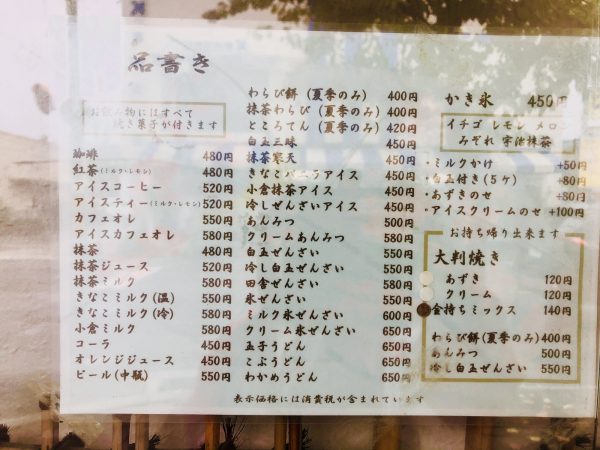 品書き
お飲み物にはすべて
焼き菓子が付きます
珈琲 480円
紅茶(ミルク・レモン) 480円
アイスコーヒー 520円
アイスティー(ミルク・レモン) 520円
カフェオレ 550円
アイスカフェオレ 580円
抹茶 480円
抹茶ジュース 520円
抹茶ミルク 580円
きなこミルク(温) 550円
きなこミルク(冷) 580円
小倉ミルク 580円
コーラ 450円
オレンジジュース 450円
ビール(中瓶) 550円
わらび餅(夏季のみ) 400円
抹茶わらび(夏季のみ) 450円
ところてん(夏季のみ) 420円
白玉三昧 450円
抹茶寒天 450円
きなこバニラアイス 450円
小倉抹茶アイス 450円
冷しぜんざいアイス 450円
あんみつ 500円
クリームあんみつ 580円
白玉ぜんざい 550円
冷し白玉ぜんざい 550円
田舎ぜんざい 550円
氷ぜんざい 550円
ミルク氷ぜんざい 600円
クリーム氷ぜんざい 650円
玉子うどん 650円
こぶうどん 650円
わかめうどん 650円
かき氷 450円
イチゴ レモン メロン
みぞれ 宇治抹茶
・ミルクかけ +50円
・白玉付き(5ケ) +80円
・あずきのせ +80円
・アイスクリームのせ +100円
お持ち帰り出来ます
大判焼き
あずき 120円
クリーム 120円
金持ちミックス 140円
わらび餅(夏季のみ) 400円
あんみつ 500円
冷し白玉ぜんざい 550円
表示価格には消費税が含まれています